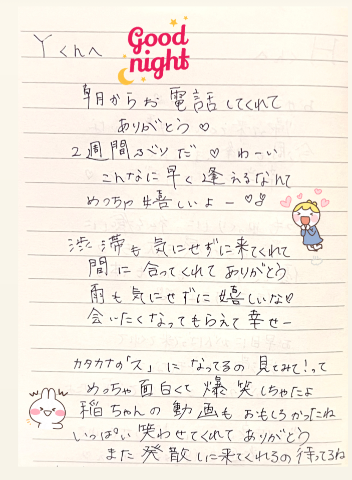 Yくんへ
Good night
朝からお電話してくれて
ありがとう♡
2週間ぶりだ♡ わーい
こんなに早く逢えるなんて
めっちゃ嬉しいよー♡
渋滞も気にせずに来てくれて
間に合ってくれてありがとう
雨も気にせずに嬉しいな♡
会いたくなってもらえて幸せー
カタカナの「ス」になってるの見てみて!って
めっちゃ面白くて爆笑しちゃたよ
稲ちゃんの動画もおもしろかったね
いっぱい笑わせてくれてありがとう
また発散しに来てくれるの待ってるね